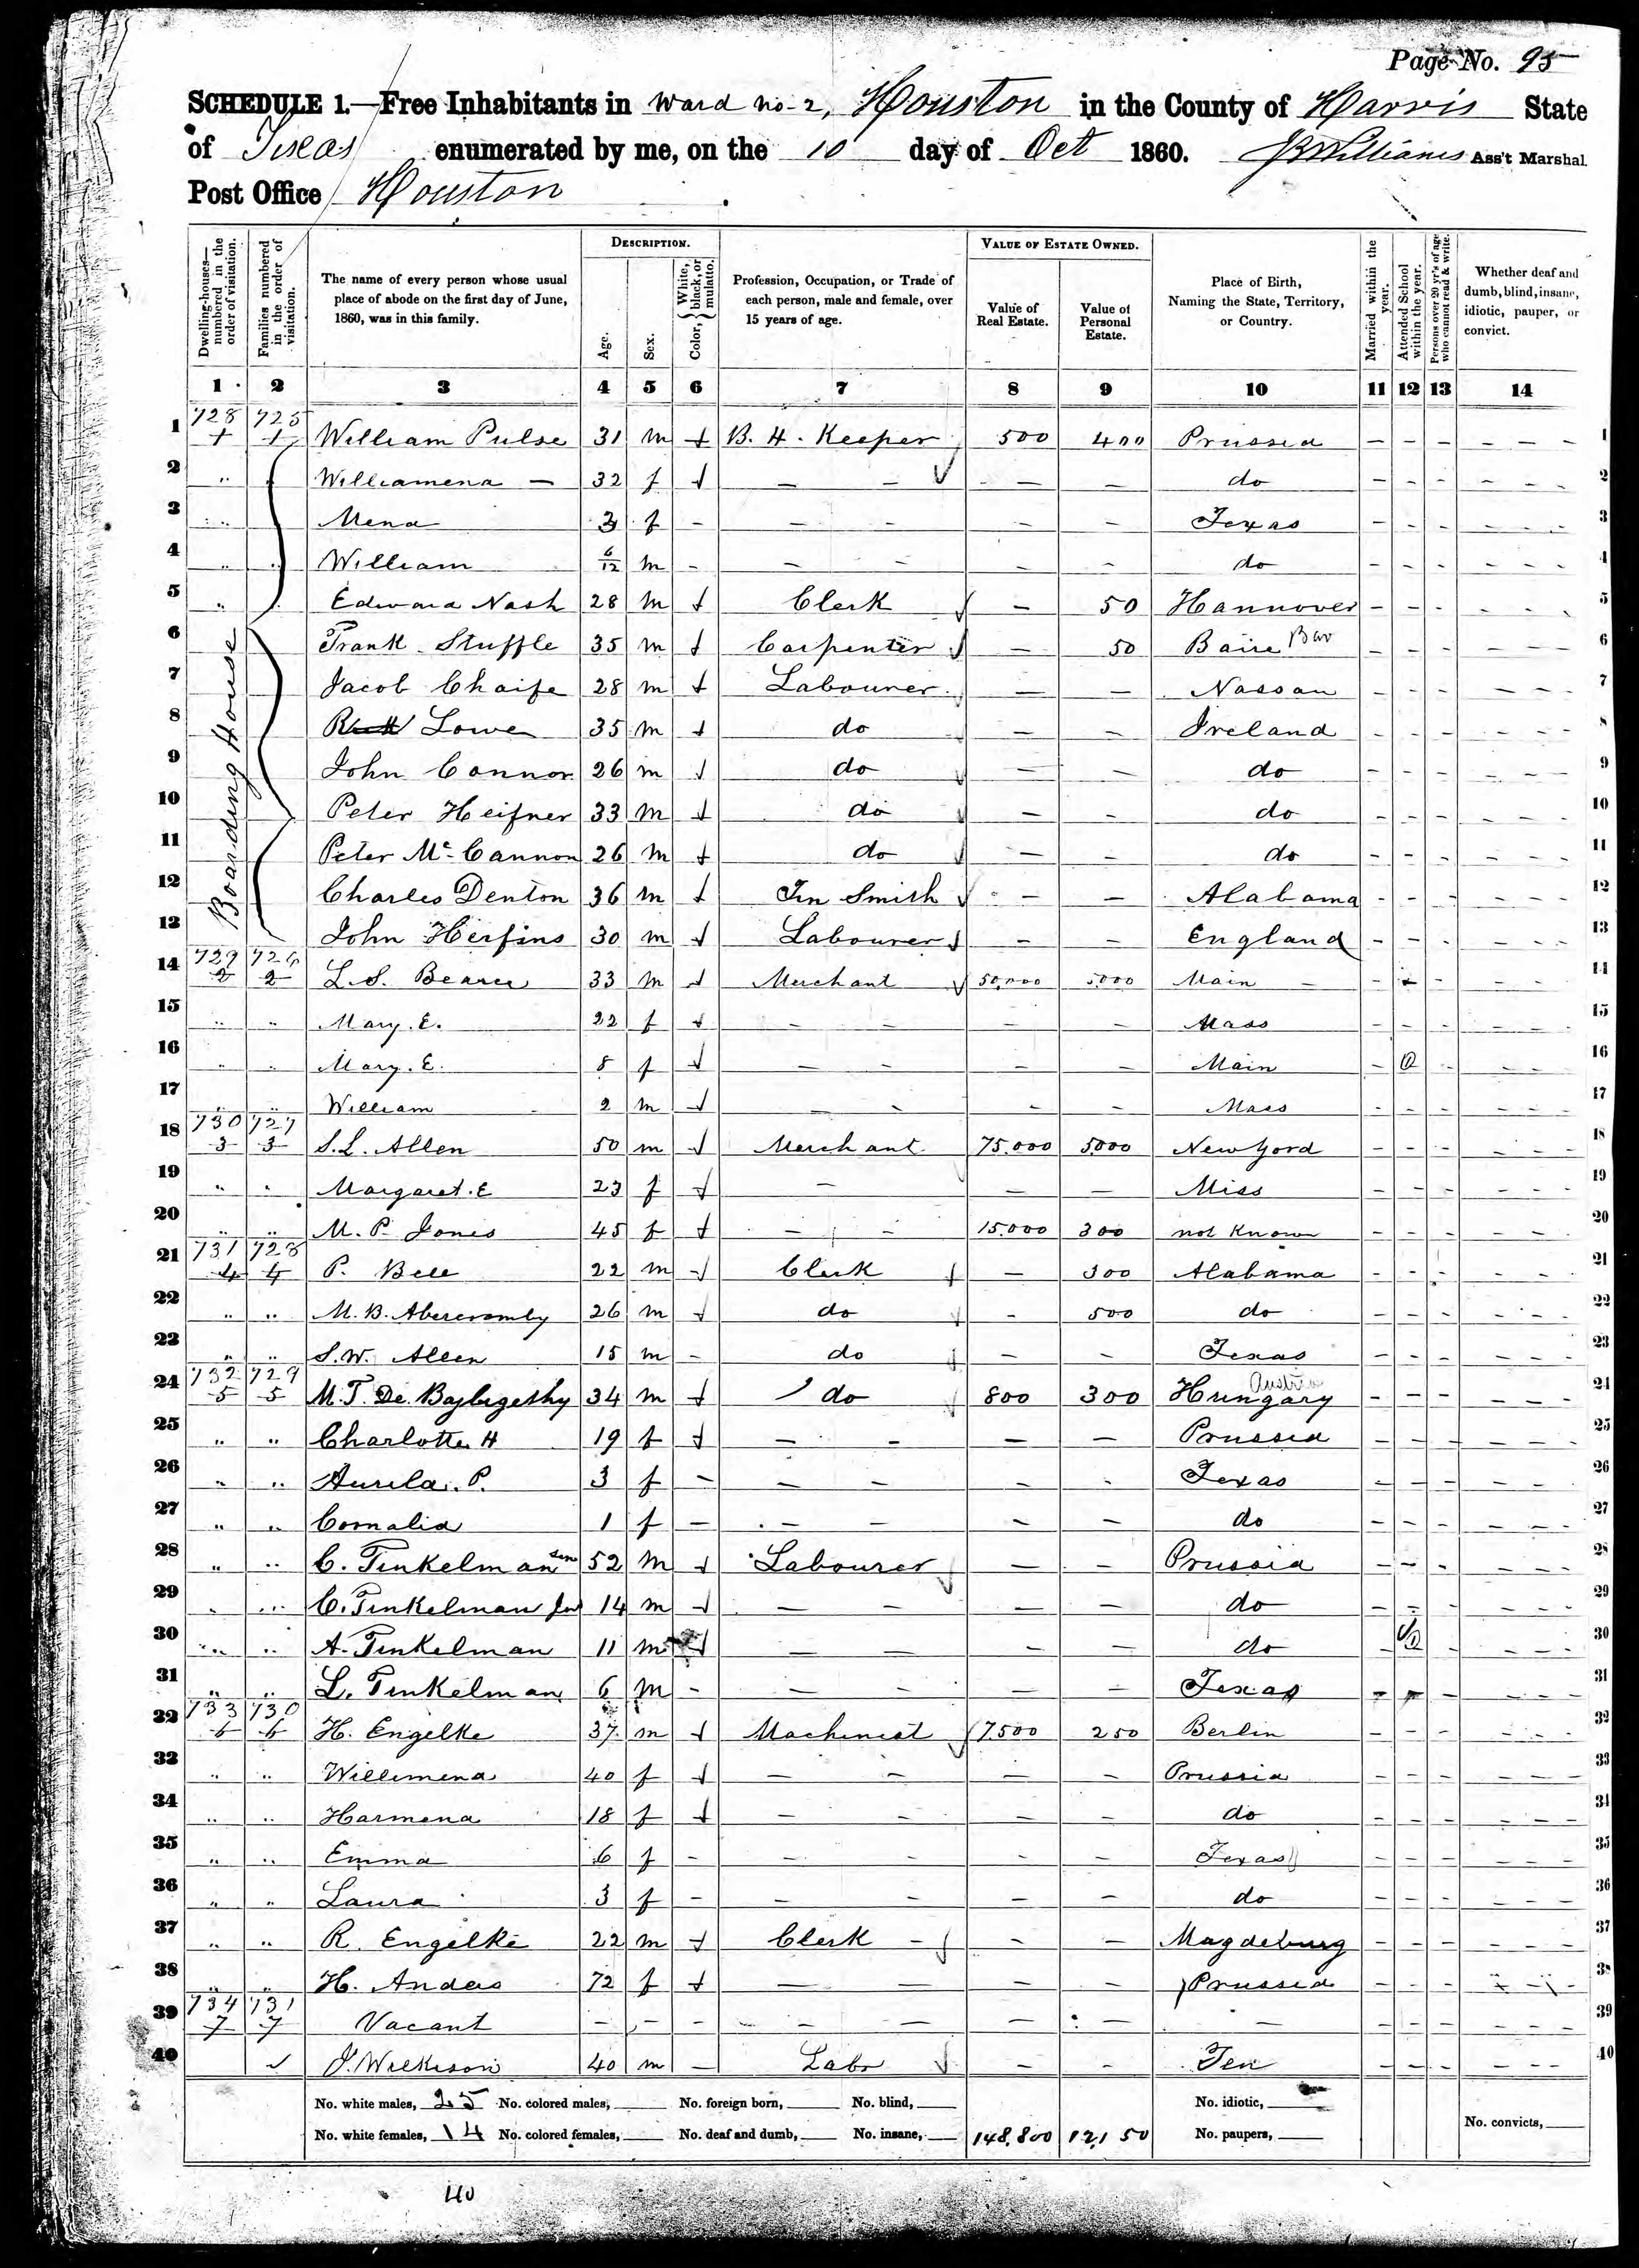 Page No. 95
SCHEDULE 1.—Free Inhabitants in Ward No. 2, Houston in the County of Harris State
of Texas enumerated by me, on the 10 day of Oct 1860. Williams Ass't Marshal.
Post Office Houston
Dwelling-houses—numbered in the order of visitation.
Families numbered in the order of visitation.
The name of every person whose usual place of abode on the first day of June, 1860, was in this family.
DESCRIPTION.
Age.
Sex.
Color, { White, black, or mulatto.
Profession, Occupation, or Trade of each person, male and female, over 15 years of age.
VALUE OF ESTATE OWNED.
Value of Real Estate.
Value of Personal Estate.
Place of Birth, Naming the State, Territory, or Country.
Married within the year.
Attended School within the year.
Persons over 20 yr's of age who cannot read & write.
Whether deaf and dumb, blind, insane, idiotic, pauper, or convict.
1 2 3 4 5 6 7 8 9 10 11 12 13 14
Boarding House
1 728 725 William Pulse 31 m B. H. Keeper 500 400 Prussia 1
2 " Williamena — 32 f — — — — do 2
3 " Mena 3 f - — — — — Texas 3
4 " William 6/12 m - — — — — do 4
5 " Edward Nash 28 m Clerk — 50 Hannover 5
6 Frank Stuffle 35 m Carpenter — 50 Baire Bav 6
7 Jacob Chaife 28 m Labourer — — Nassau 7
8 Lowe 35 m do — — Ireland 8
9 John Connor 26 m do — — do 9
10 Peter Heifner 33 m do — — do 10
11 Peter Mc Cannon 26 m do — — do 11
12 Charles Denton 36 m Tin Smith — — Alabama 12
13 John Herfins 30 m Labourer — — England 13
14 729 726 2 2 L. S. 33 m Merchant 50,000 5000 Main 14
15 " " Mary. E. 22 f — — — — Mass 15
16 " " Mary. E. 8 f — — — — Main 16
17 " " William 2 m — — — — Mass 17
18 730 727 3 3 S. L. Allen 50 m Merchant 75.000 5000 New Yord 18
19 " " Margaret. E 23 f — — — Miss 19
20 " " M. P. Jones 45 f — — 15.000 300 not Known 20
21 731 728 4 4 P. Bell 22 m Clerk — 300 Alabama 21
22 " " M. B. Abercromby 26 m do - 500 do 22
23 " " S. W. Allen 15 m - do — — Texas 23
24 732 729 5 5 M. T. De. 34 m do 800 300 Hungary Austria 24
25 " " Charlotte H 19 f — — — — Prussia 25
26 " " Aurela. P. 3 f — — — — Texas 26
27 " " Cornalia 1 f — — — — do 27
28 " " C. Tinkelman Sen 52 m Labourer — — Prussia 28
29 " " C. Tinkelman Jun 14 m — — — — do 29
30 " " A. Tinkelman 11 m — — — — do 30
31 " " L. Tinkelman 6 m - — — — — Texas 31
32 733 730 6 6 H. Engelke 37 m Machinist 7.500 250 Berlin 32
33 " " Willimena 40 f — — — — Prussia 33
34 " " Harmena 18 f — — — — do 34
35 " " Emma 6 f - — — — — Texas 35
36 " " Laura 3 f - — — — — do 36
37 " " R. Engelke 22 m Clerk — — Magdeburg 37
38 " " H. Anders 72 f — — — — Prussia 38
39 734 731 7 7 Vacant - - - — — — — — 39
40 J. Wilkison 40 m — Labr — - Ten 40
No. white males, 25 No. colored males, No. foreign born, No. blind, No. idiotic,
No. white females, 14 No. colored females, No. deaf and dumb, No. insane, 148,800 12,150 No. paupers, No. convicts,
40